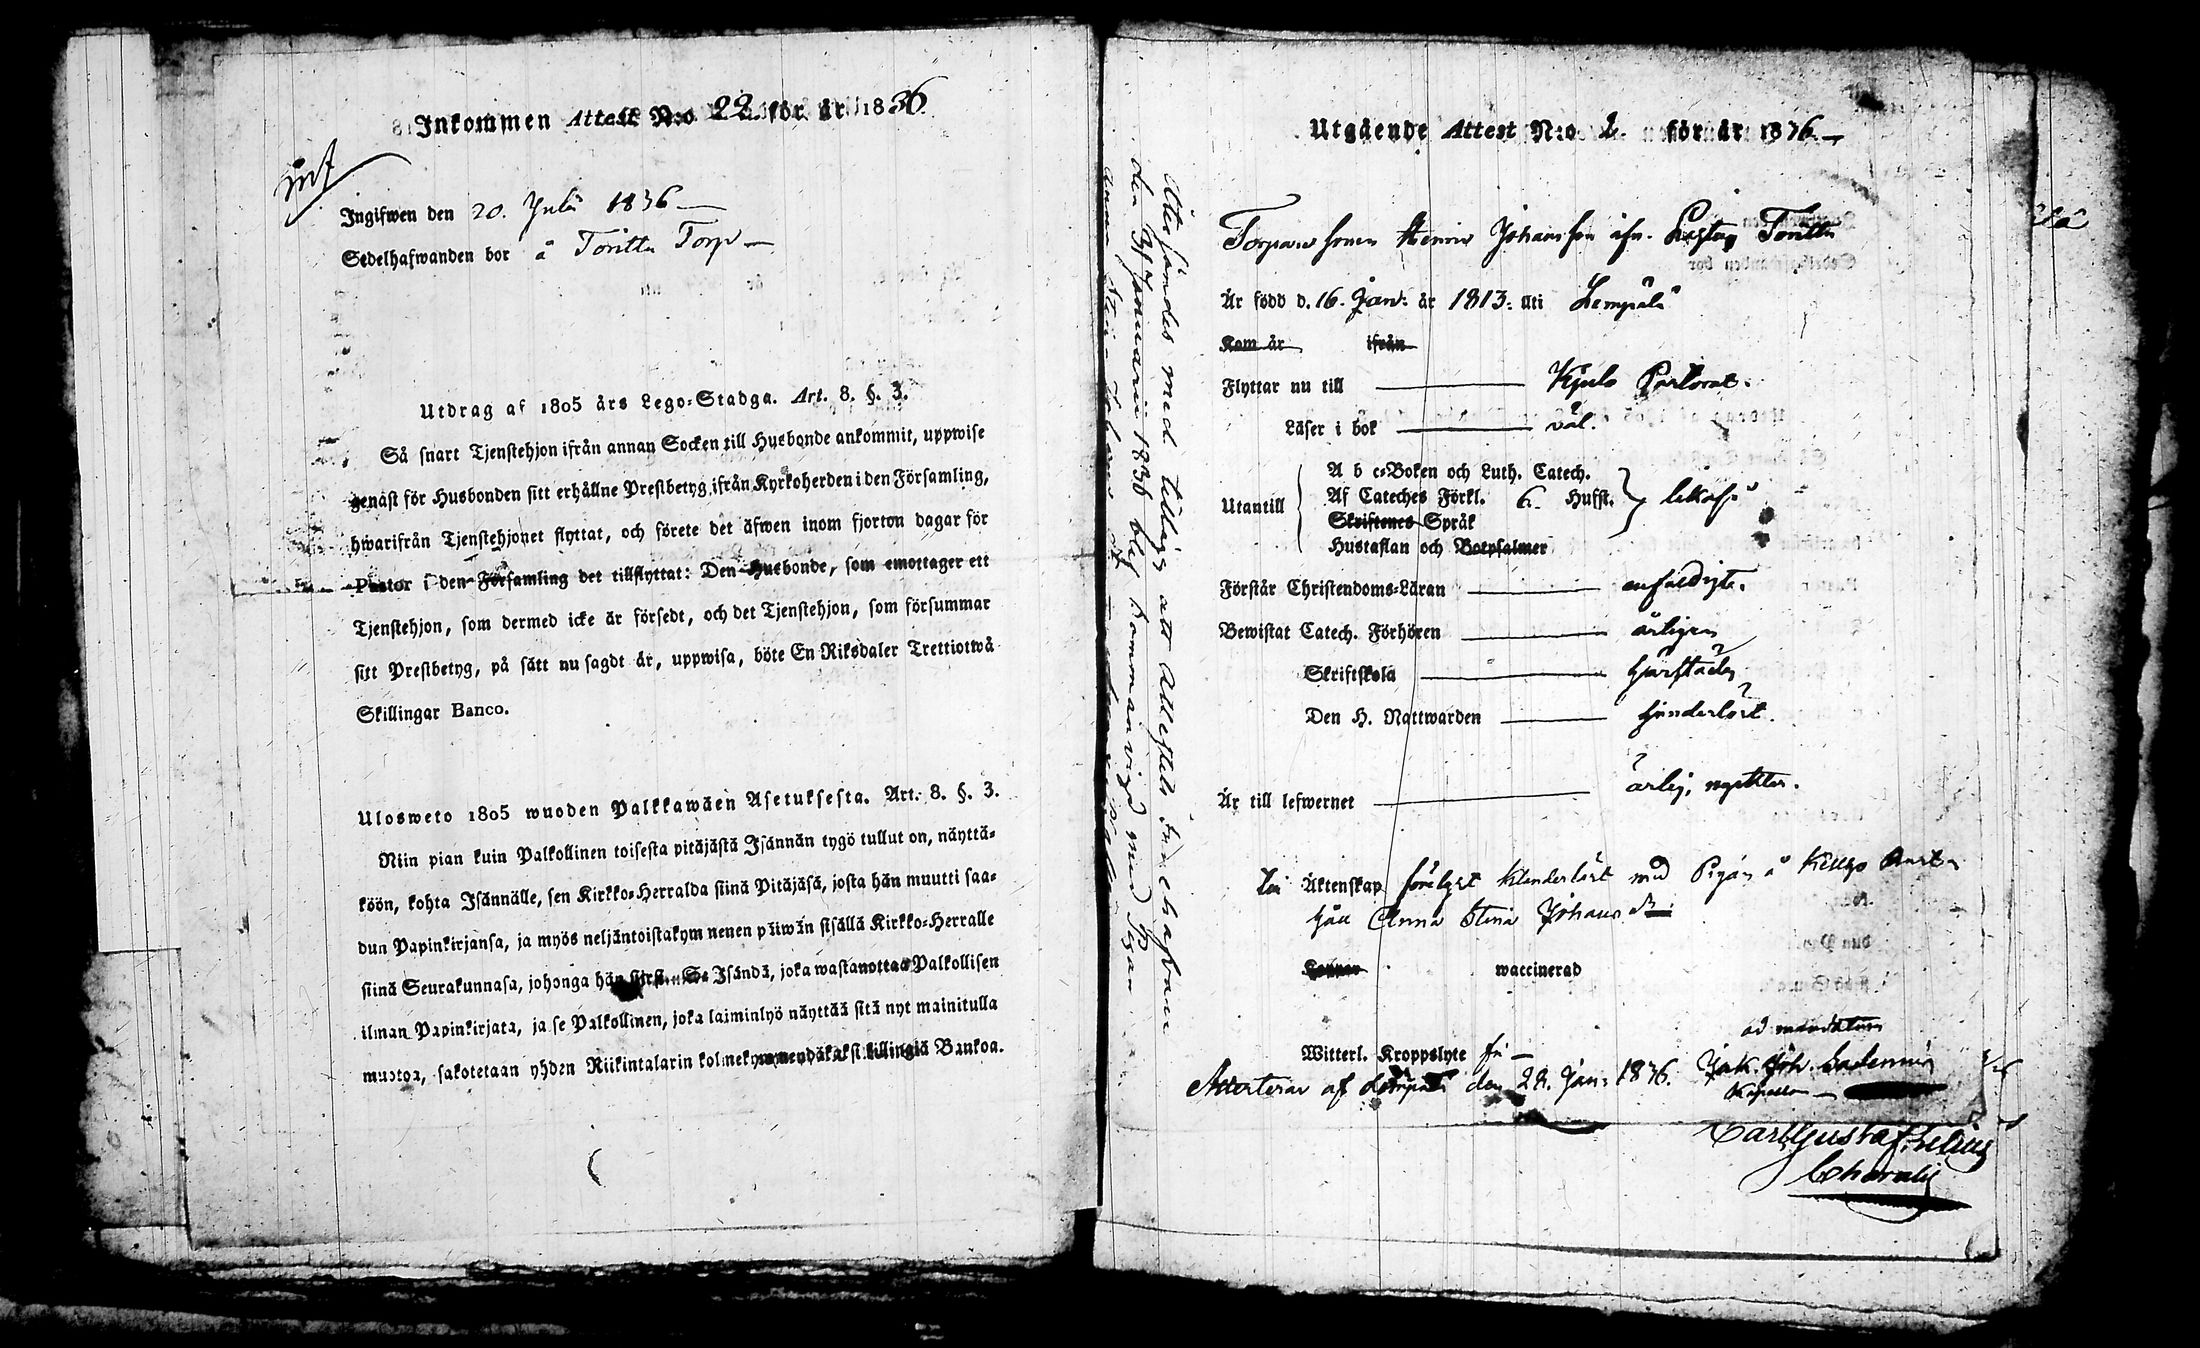 Inkommen Attest N:o 22 för år 1836.
Ingifwen den 20. Julii 1836
Sedelhafwanden bor å Toritta Torp
Utdrag af 1805 års Lego-Stadga. Art. 8. §. 3.
Så snart Tjenstehjon ifrån annan Socken till Husbonde ankommit, uppwise
genast för Husbonden sitt erhållne Prestbetyg ifrån Kyrkoherden i den Församling,
hwarifrån Tjenstehjonet flyttat, och förete det äfwen inom fjorton dagar för
Pastor i den Församling det tillflyttat: Den Husbonde, som emottager ett
Tjenstehjon, som dermed icke är försedt, och det Tjenstehjon, som försummar
sitt Prestbetyg, på sätt nu sagdt är, uppwisa, böte En Riksdaler Trettiotwå
Skillingar Banco.
Ulosweto 1805 wuoden Palkkawäen Asetuksesta. Art. 8. §. 3.
Niin pian kuin Palkollinen toisesta pitäjästä Isännän tygö tullut on, näyttä-
köön, kohta Isännälle, sen Kirkko-Herralda siinä Pitäjäsä, josta hän muutti saa-
dun Papinkirjansa, ja myös neljäntoistakymmenen päiwän sisällä Kirkko-Herralle
siinä Seurakunnasa, johonga hän siirsi. Se Isändä, joka wastanottaa Palkollisen
ilman Papinkirjata, ja se Palkollinen, joka laiminlyö näyttää sitä nyt mainitulla
muotoa, sakotetaan yhden Riikintalarin kolmekymmendäkaksi killingiä Bankoa.
Utgående Attest N:o 2. för år 1836.
Torparesonen Henric Johansson ifr. Toritta
Är född d. 16. Jan: år 1813. uti Lempälä
Kom år ifrån
Flyttar nu till Kjulo Pastorat.
Läser i bok väl.
Utantill
A b c-Boken och Luth. Catech.
Af Cateches Förkl. 6. Hufst.
Skriftenes Språk
Hustaflan och Botpsalmer
Förstår Christendoms-Läran enfaldigt.
Bewistat Catech. Förhören årligen
Skriftskola
Den H. Nattwarden hinderlöst.
Är till lefwernet ärlig, nykter.
Till Äktenskap hinderlöst med Pigan å
Anna Stina Johansdr
Koppor waccinerad
Witterl. Kroppslyte fri
Attesterar af Lempälä den 28. Jan: 1836.
ad mandatum
Jak. Joh.
Kapellan
Carl Gustaf
Återsändes med tillägg att Attestets innehafvare
den Januarii 1836 blef sammanvigd med Pigan
Anna Stina Johansdr